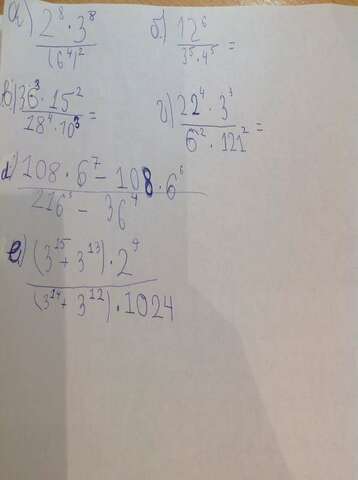 а) 2⁸ · 3⁸ / (6⁴)² б) 12⁶ / 3⁵ · 4⁵ =
в) 36³ · 15² / 18⁴ · 10³ = г) 22⁴ · 3³ / 6² · 121² =
д) 108 · 6⁷ - 108 · 6⁶ / 216³ - 36⁴
е) (3¹⁵ + 3¹³) · 2⁹ / (3¹⁴ + 3¹²) · 1024